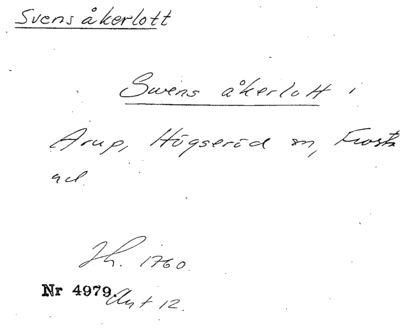 Svens åkerlott
Swens åkerlott i
Arup, Högseröd sn, Frosta
hd.
Jh. 1760.
Nr 4979. Ant 12.